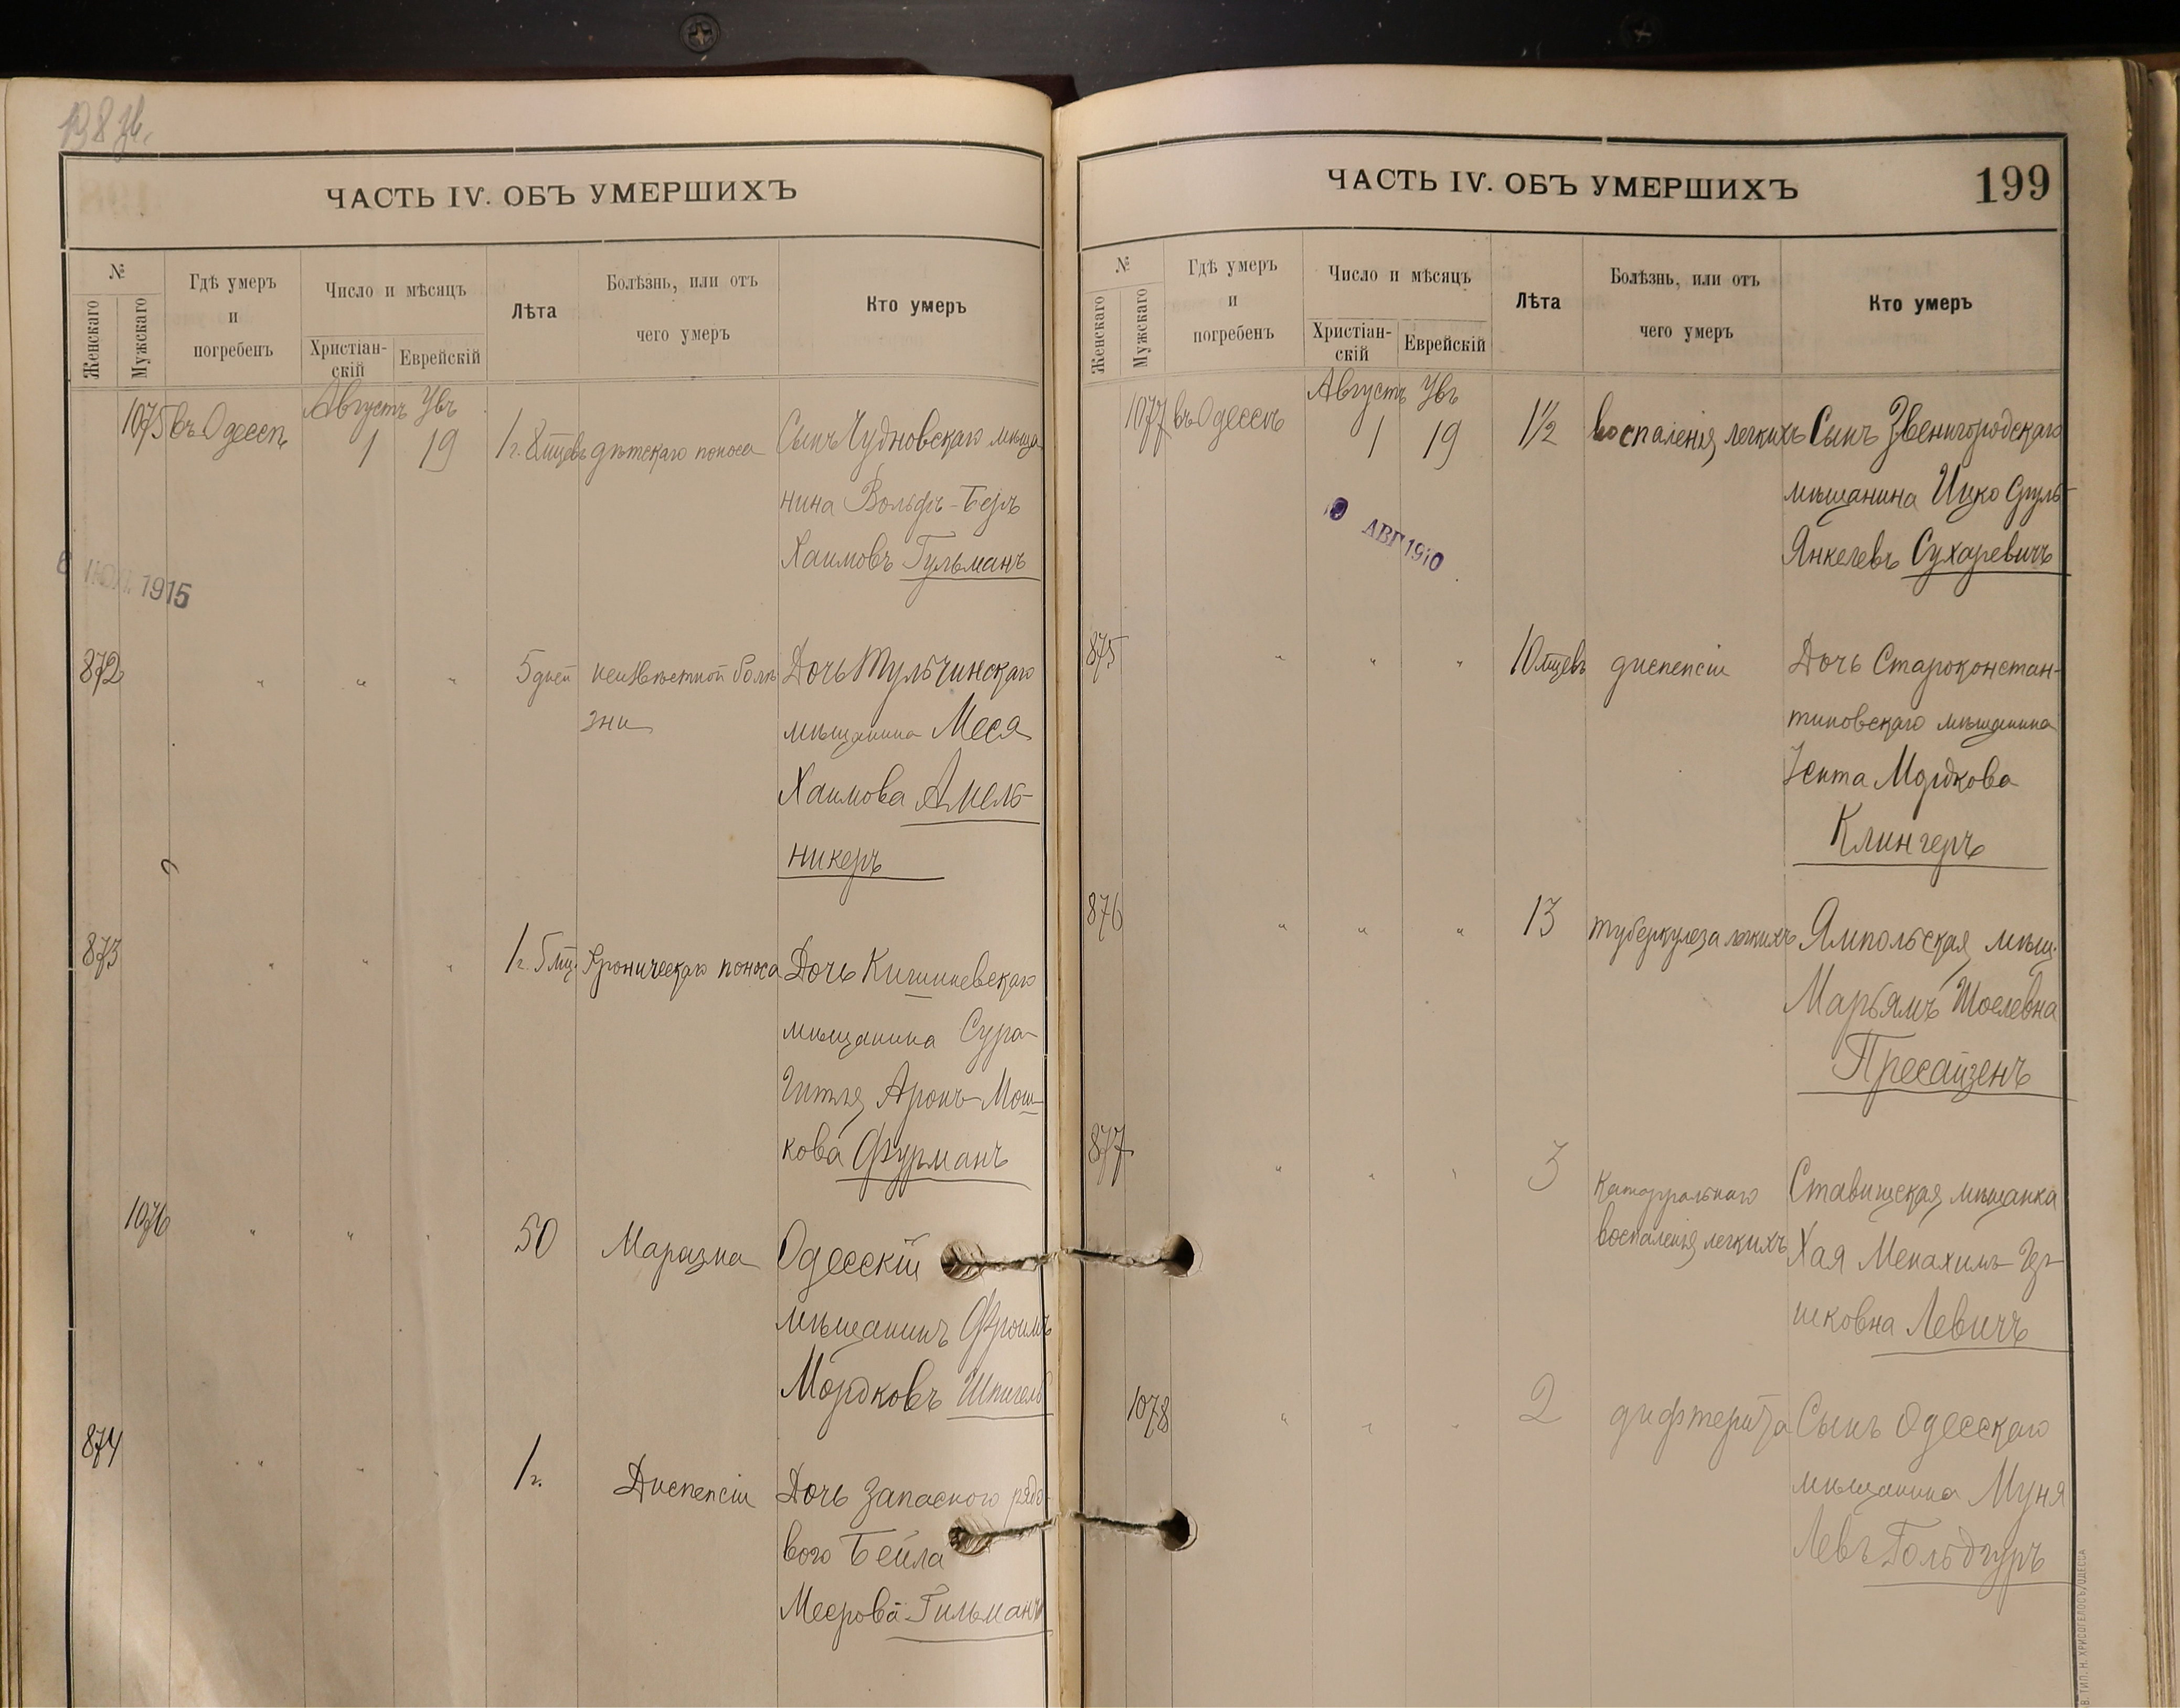 ЧАСТЬ IV. ОБЪ УМЕРШИХЪ
№
Женскаго
Мужскаго
Гдѣ умеръ
и
погребенъ
Число и мѣсяцъ
Христіан-
скій
Еврейскій
Лѣта
Болѣзнь, или отъ
чего умеръ
Кто умеръ
1075 въ Одессѣ Августъ 1 Увъ 19 1 г. 8 мцевъ дѣтскаго поноса Сынъ Чудновскаго мѣща-
нина Вольфъ-Беръ
Хаимовъ Гульманъ
1915
872 " " " 5 дней неизвѣстной болѣ- Дочь Тульчинскаго
зни мѣщанина Меся
Хаимова Амель-
никеръ
873 " " " 1 г. 5 мц. Хроническаго поноса Дочь Кишиневскаго
мѣщанина Сура-
Гитля Аронъ-Мош-
кова Фурманъ
1076 " " " 50 Маразма Одесскій
мѣщанинъ Фроимъ
Мордковъ Шпигель
874 " " " 1 г. Диспепсіи Дочь запаснаго рядо-
вого Бейла
Меерова Гильманъ
ЧАСТЬ IV. ОБЪ УМЕРШИХЪ
199
№
Женскаго
Мужскаго
Гдѣ умеръ
и
погребенъ
Число и мѣсяцъ
Христіан-
скій
Еврейскій
Лѣта
Болѣзнь, или отъ
чего умеръ
Кто умеръ
1077 въ Одессѣ Августъ 1 Увъ 19 1½ воспаленія легкихъ Сынъ Звенигородскаго
мѣщанина Ицко Сруль-
Янкелевъ Сухаревичъ
АВГ 1910
875 " " " 10 мцевъ диспепсіи Дочь Староконстан-
тиновскаго мѣщанина
Ента Мордкова
Клингеръ
876 " " " 13 туберкулеза легкихъ Ямпольская мѣщ.
Марьямъ Шоелевна
Пресайзенъ
877 " " " 3 Катаррольнаго Ставищская мѣщанка
воспаленія легкихъ Хая Менахимъ-
Левичъ
1078 " " " 2 дифтерита Сынъ Одесскаго
мѣщанина Муня
Левъ Гольдгуръ